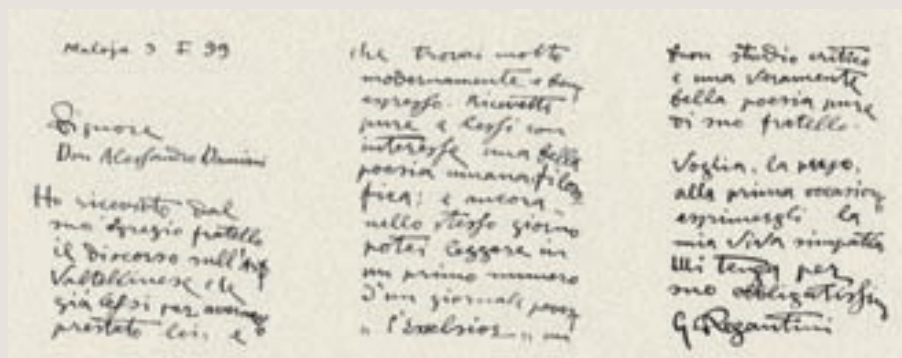 Maloja 3 I 99
Signore
Don Alessandro Damiani
Ho ricevuto dal
suo egregio fratello
il discorso sull'Arte
Valtellinese che
già lessi per avermelo
prestato lei, e
che trovai molto
modernamente e ben
espresso. Ricevetti
pure e lessi con
interesse una bella
poesia umana filoso
fica; e ancora
nello stesso giorno
potei leggere in
un primo numero
d'un giornale
"l'Excelsior" un
buon studio critico
e una veramente
bella poesia pure
di suo fratello.
Voglia, la prego,
alla prima occasione
esprimergli la
mia viva simpatia
Mi tenga per
suo obbligatissimo
G Segantini